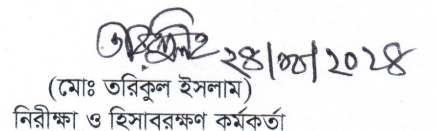 ২৪/০৮/২০২৪
(মোঃ তরিকুল ইসলাম)
নিরীক্ষা ও হিসাবরক্ষণ কর্মকর্তা